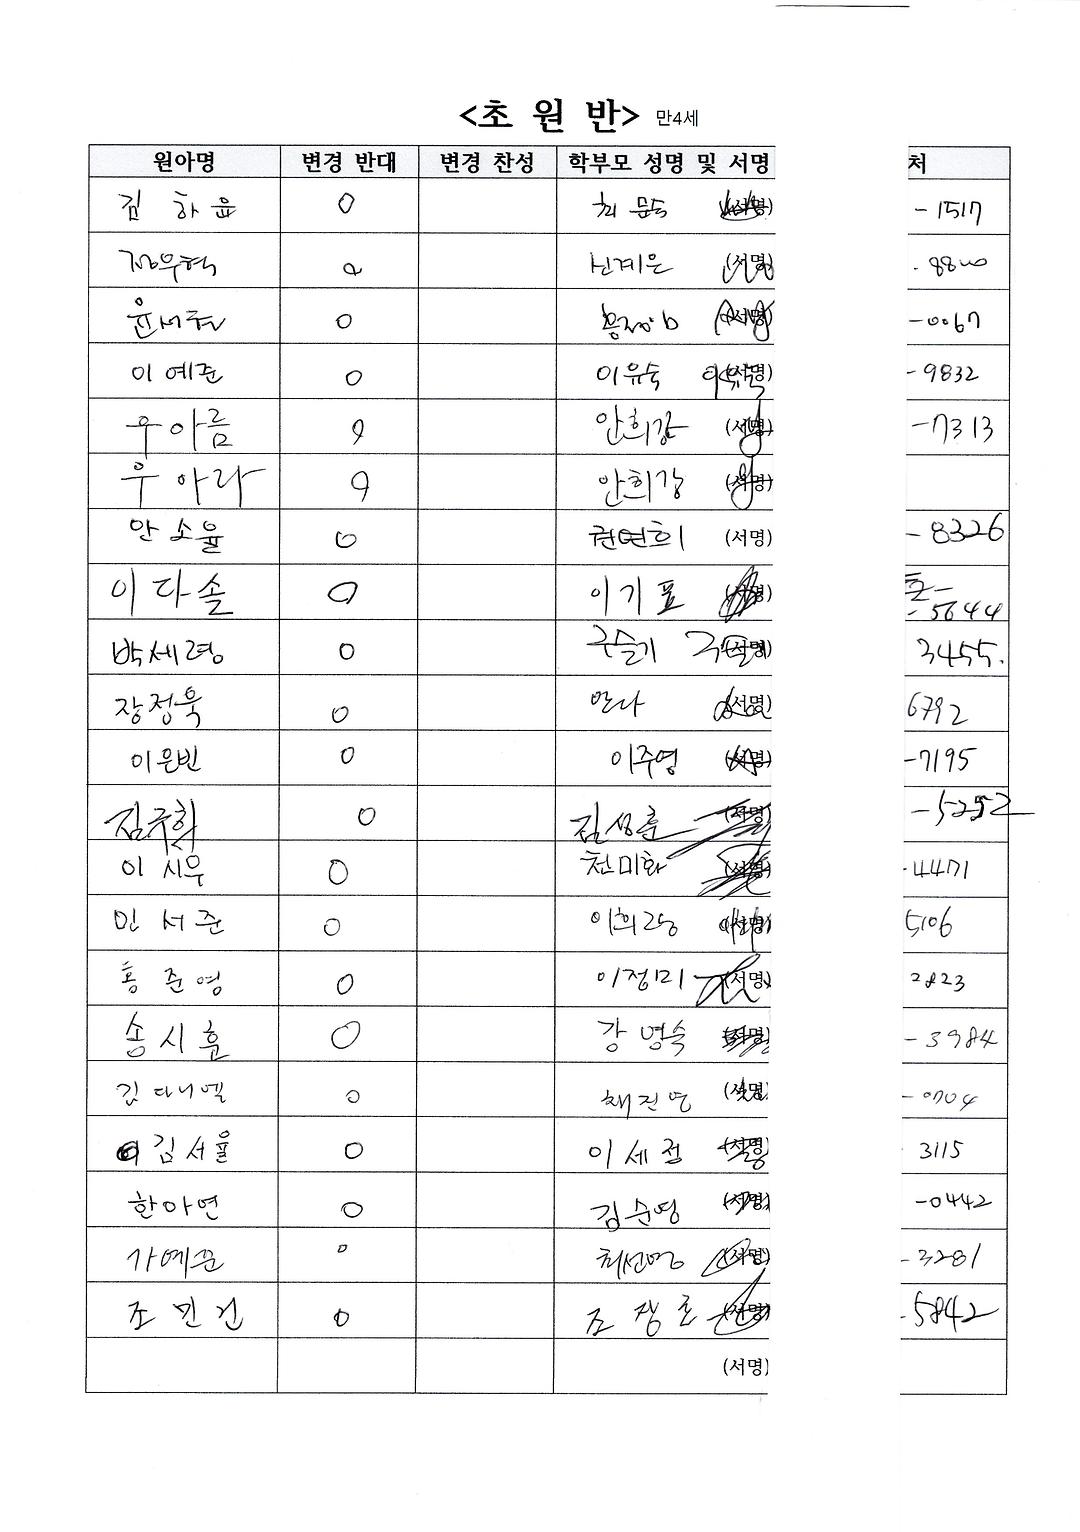 <초 원 반> 만4세
원아명 변경 반대 변경 찬성 학부모 성명 및 서명 처
김 하 윤 O 최 문숙 (서명) -1517
정우혁 O 신계은 (서명)
윤서현 O (서명) -0067
이 예준 O 이유숙 (서명) -9832
우아름 O 안희강 (서명) -7313
우 아라 O 안희강 (서명)
안 소율 O 권연희 (서명) -8326
이 다 솔 O 이 기 표 (서명) -5644
박세령 O 구슬기 (서명) 3455.
장정욱 O 안나 (서명) 6792
이은빈 O 이주영 (서명) -7195
김주희 O 김성훈 (서명) -5252
이 시우 O 천미화 (서명) -4471
민 서 준 O 이희강 (서명) 5106
홍 준 영 O 이정미 (서명) 2823
송 시 훈 O 강 명숙 (서명) -3984
김 다니엘 O 채진영 (서명) -0704
김 서율 O 이 세 정 (서명) 3115
한아연 O 김순영 (서명) -0442
가예준 O 최선명 (서명) -3281
조 민 건 O 조 장 호 (서명) -5842
(서명)